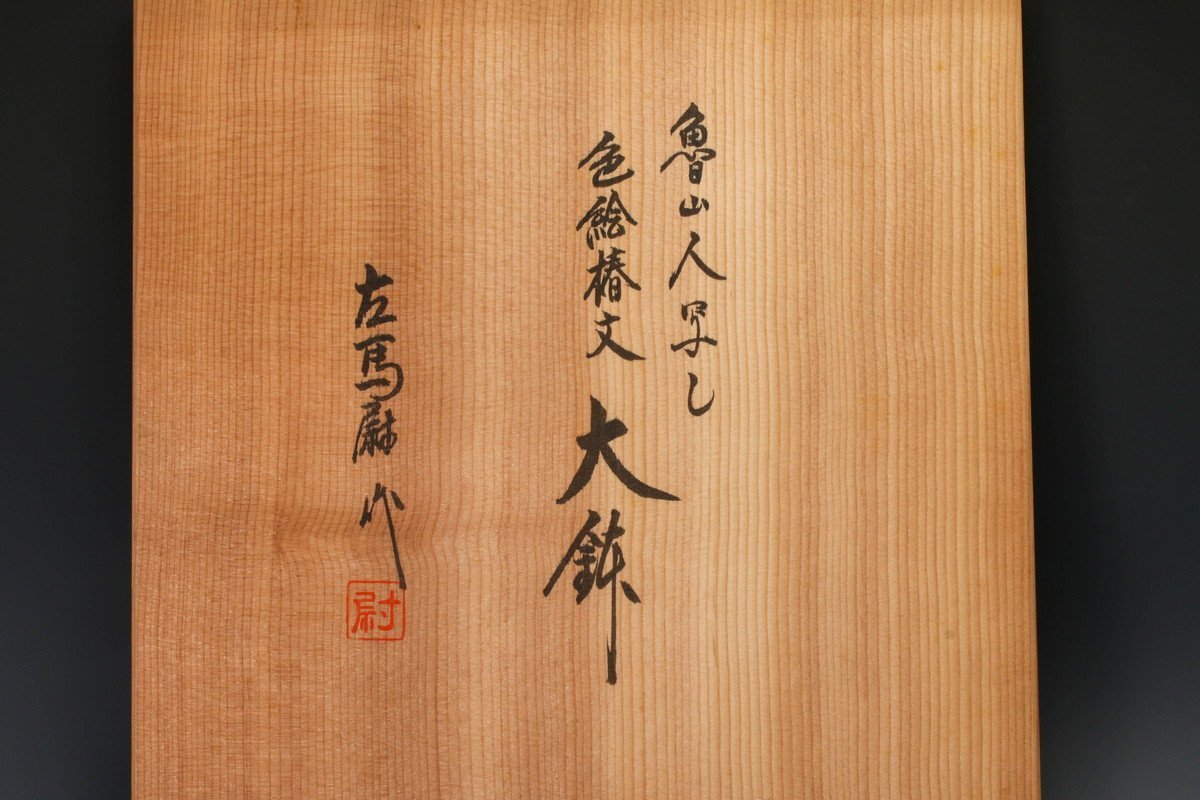 魯山人写し
色絵椿文
大鉢
左馬尉作
尉